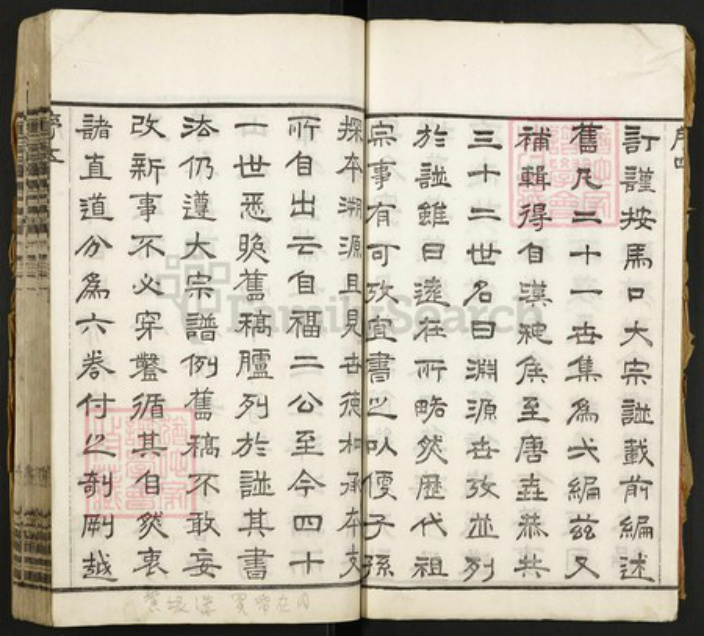 序四
訂謹按馬口大宗譜載前編述
舊凡二十一世集為弍編茲又
補輯得自漢秺侯至唐恭共
三十二世名曰淵源世攷並列
於譜雖曰遠在所略然歷代祖
宗事有可攷宜書之以便子孫
探本溯源且見世德相承本支
所自出云自福二公至今四十
一世悉照舊稿臚列於譜其書
法仍遵大宗譜例舊稿不敢妄
改新事不必穿鑿循其自然衷
諸直道分為六卷付之剞劂越
序五
FamilySearch